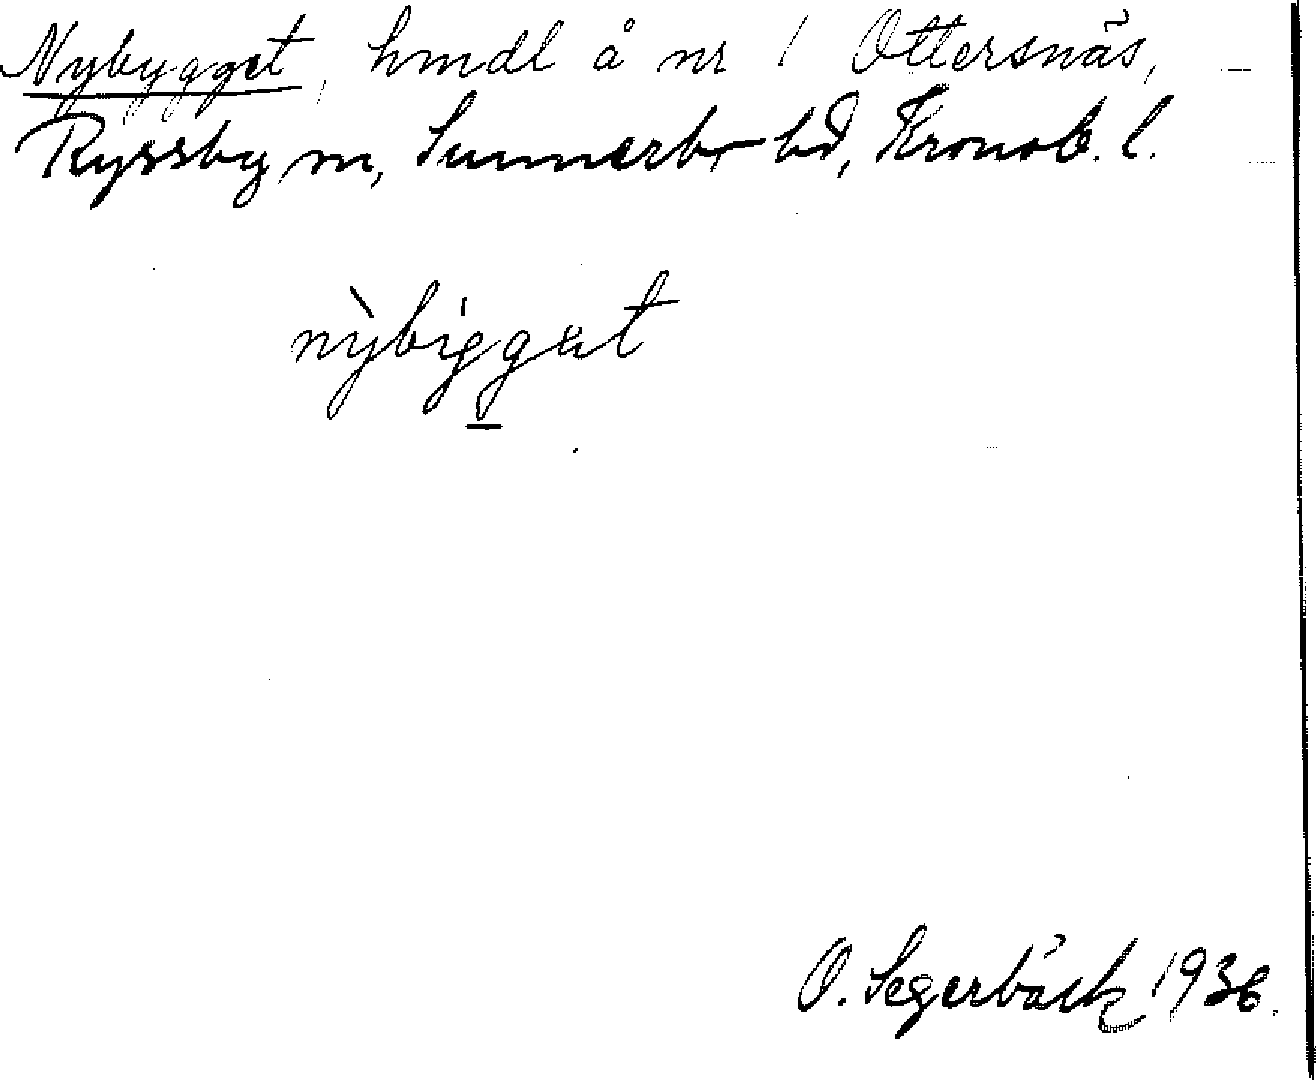 Nybygget, hmdl å nr 1 Ottersnäs,
Ryssby sn, Sunnerbo hd, Kronob. l.
nỳbiggat
O. Segerbäck 1936.